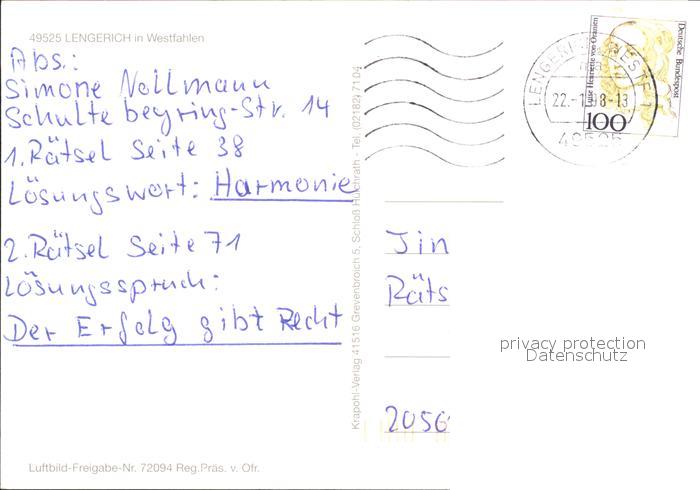 49525 LENGERICH in Westfahlen
Abs.:
Simone Nollmann
Schulte beyring-Str. 14
1. Rätsel Seite 38
Lösungswort: Harmonie
2. Rätsel Seite 71
Lösungsspruch:
Der Erfolg gibt Recht
Luftbild-Freigabe-Nr. 72094 Reg.Präs. v. Ofr.
Krapohl-Verlag 41516 Grevenbroich 5, Schloß Hülchrath - Tel. (02182) 71 04
Deutsche Bundespost
Luise Henriette von Oranien
100
22.-1.98-13
49525
Jin
Räts
2056
privacy protection
Datenschutz